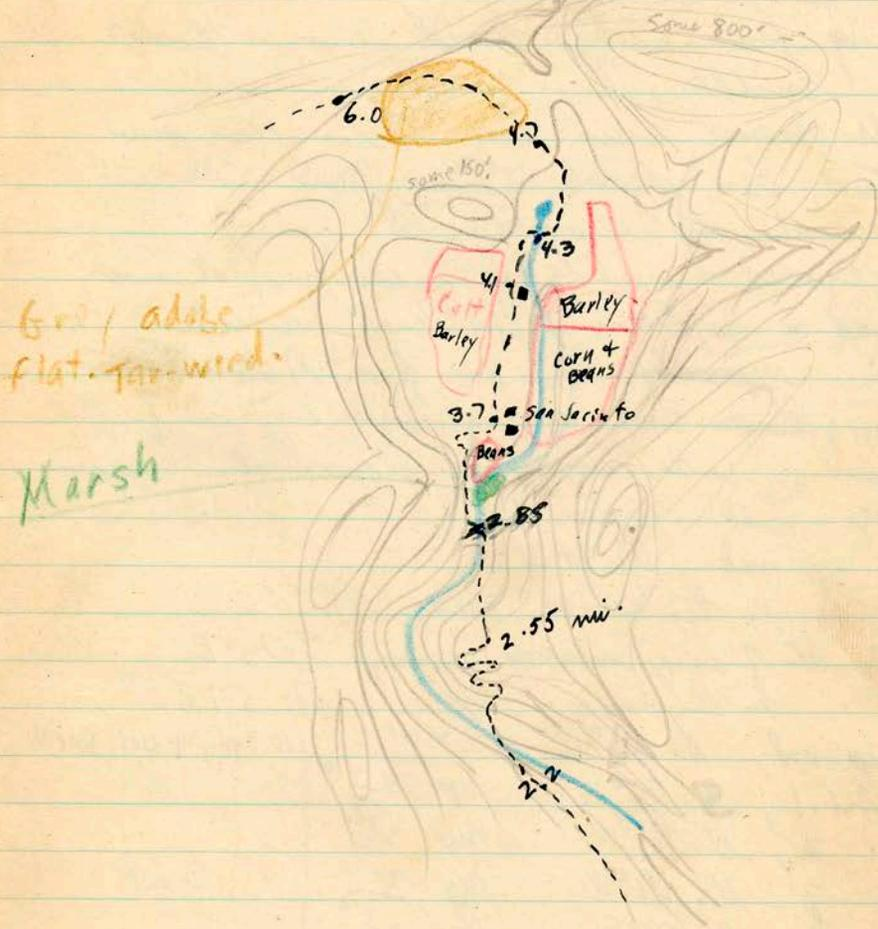 Some 800'
6.0
4.7
some 150'
4.3
4.1
Barley
Barley
Corn +
Beans
adobe
flat. Tar-weed.
3.7
San Jacinto
Beans
Marsh
2.85
2.55 mi.
2.2